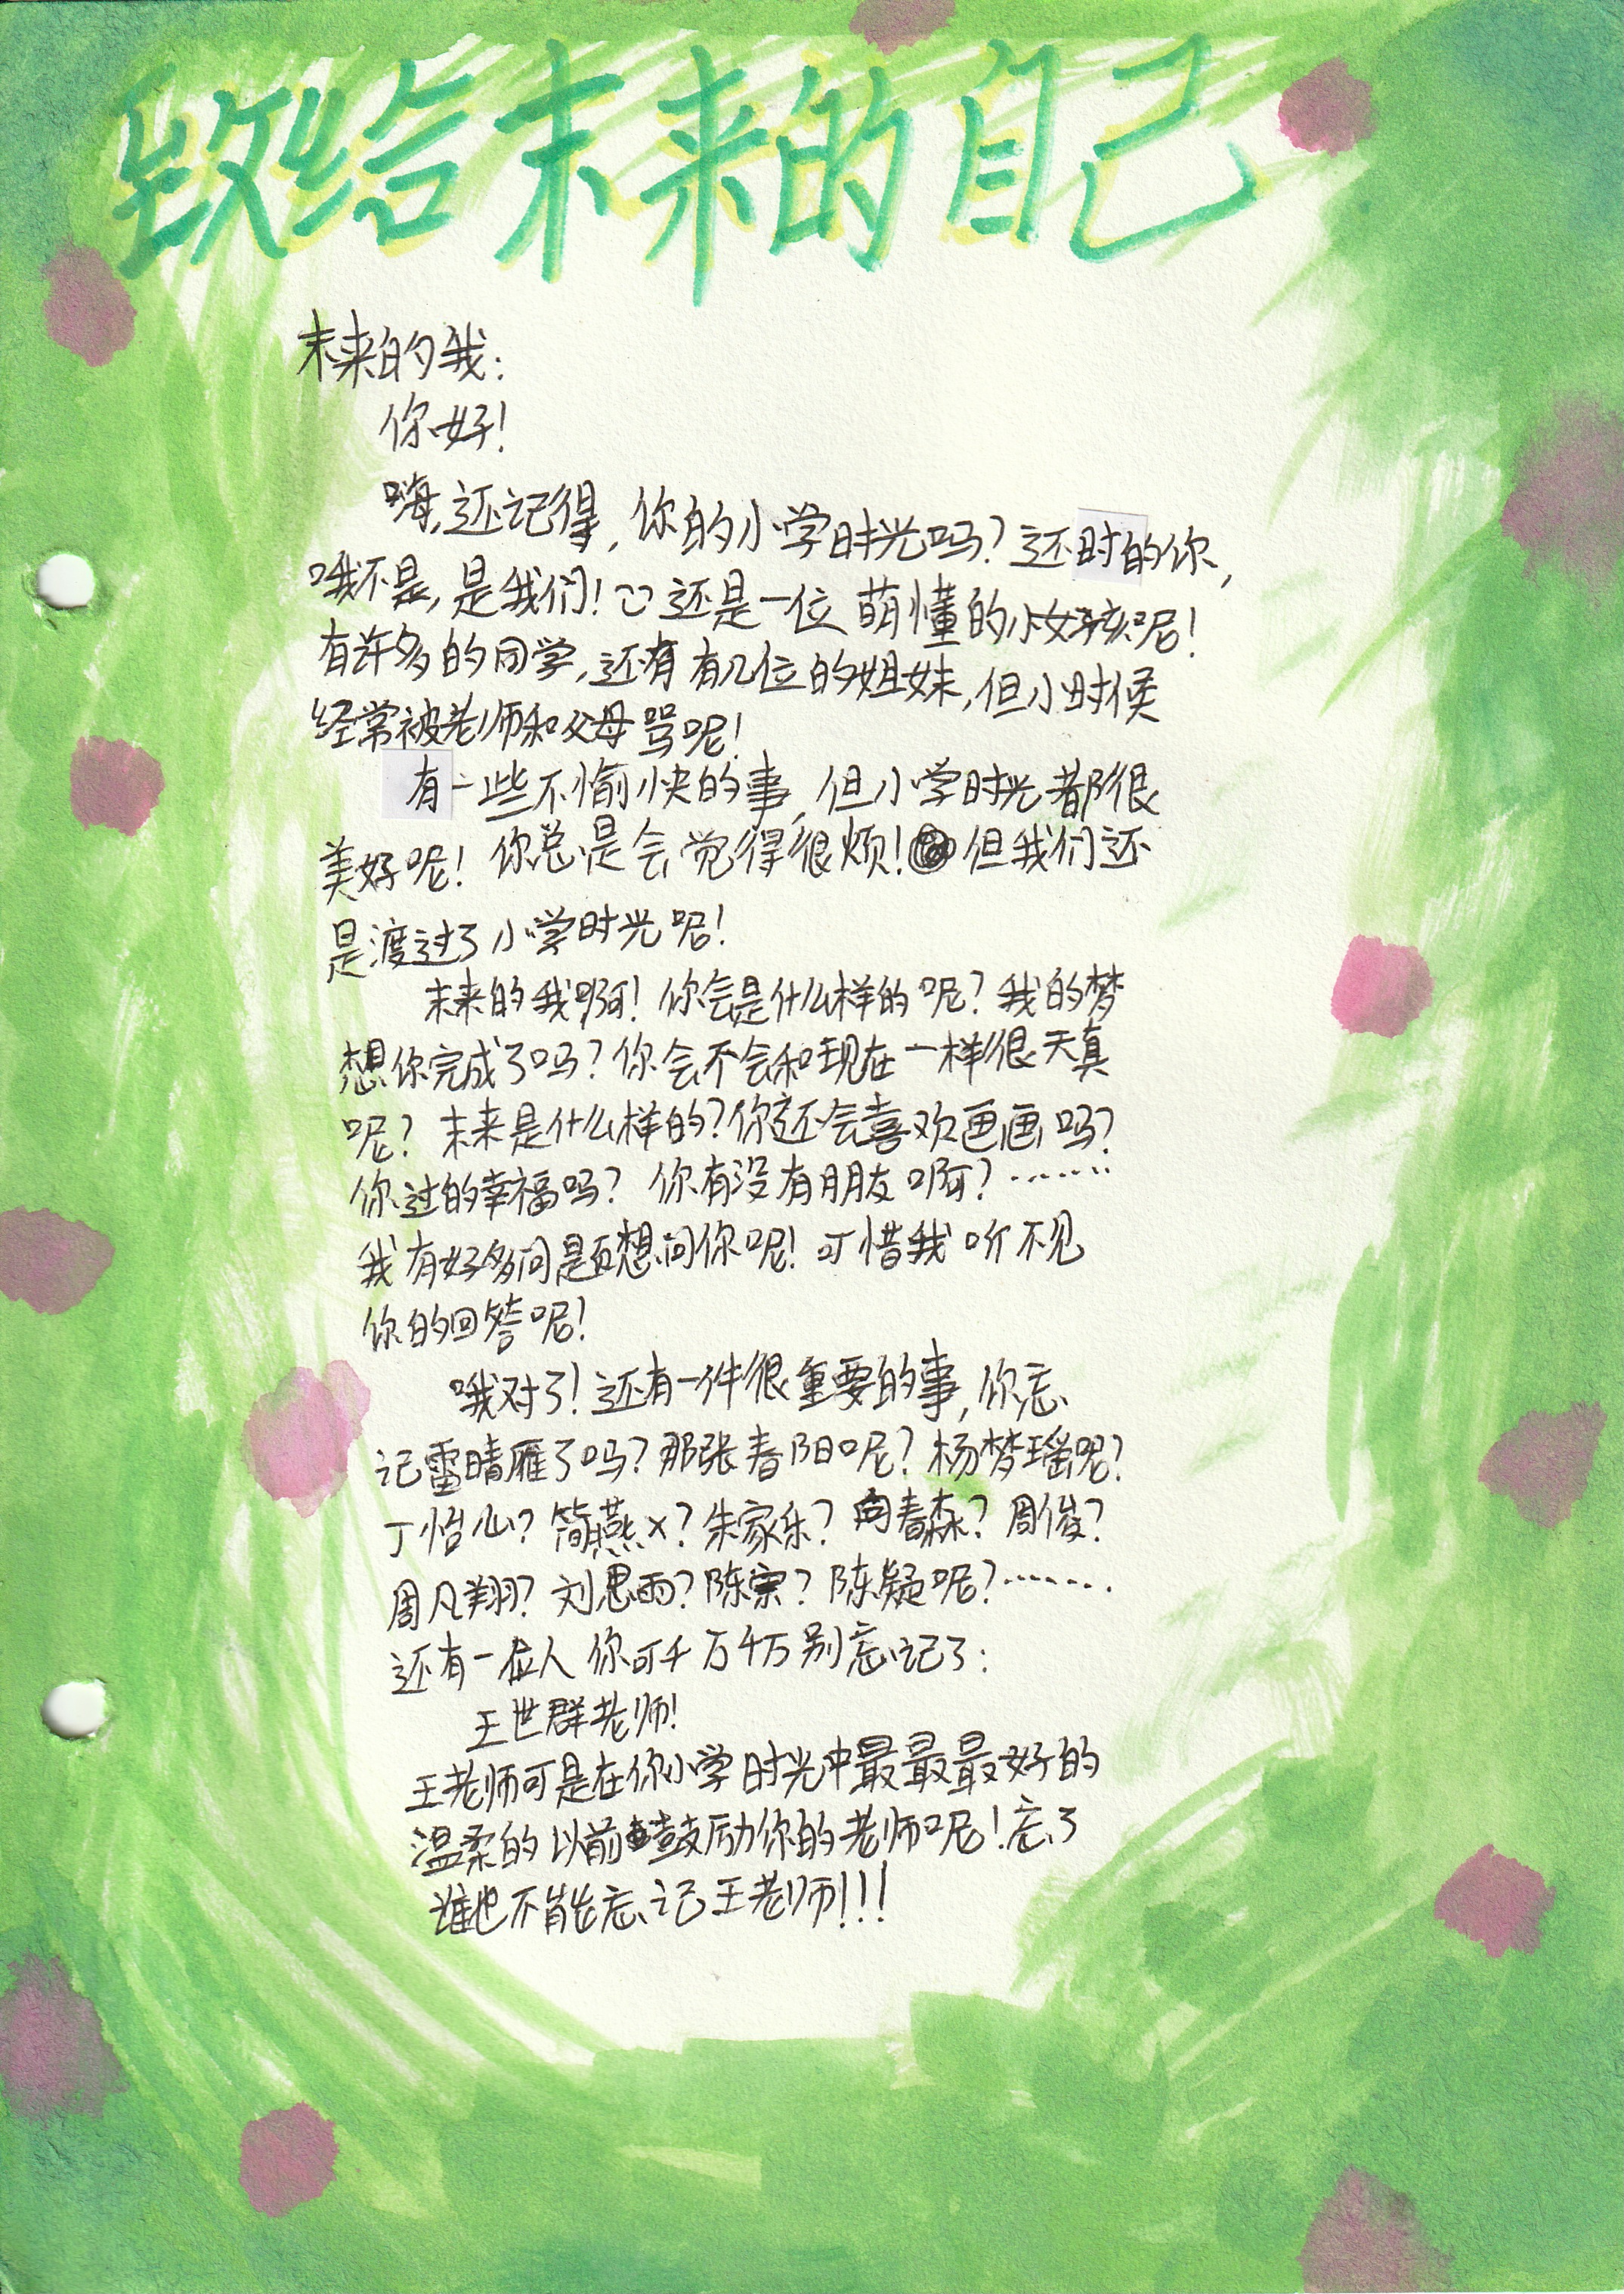 致给未来的自己
未来的我：
你好！
嗨，还记得，你的小学时光吗？还时的你，
哦不是，是我们！还是一位萌懂的小女孩呢！
有许多的同学，还有有几位的姐妹，但小时候
经常被老师和父母骂呢！
有一些不愉快的事，但小学时光都很
美好呢！你总是会觉得很烦！但我们还
是渡过了小学时光呢！
未来的我啊！你会是什么样的呢？我的梦
想你完成了吗？你会不会和现在一样很天真
呢？未来是什么样的？你还会喜欢画画吗？
你过的幸福吗？你有没有朋友啊？……
我有好多问题想问你呢！可惜我听不见
你的回答呢！
哦对了！还有一件很重要的事，你忘
记雷晴雁了吗？那张春阳呢？杨梦瑶呢？
丁怡心？简燕x？朱家乐？向春森？周俊？
周凡翔？刘思雨？陈宗？陈凝呢？……
还有一位人你可千万千万别忘记了：
王世群老师！
王老师可是在你小学时光中最最最好的
温柔的以前鼓励你的老师呢！忘了
谁也不能忘记王老师！！！